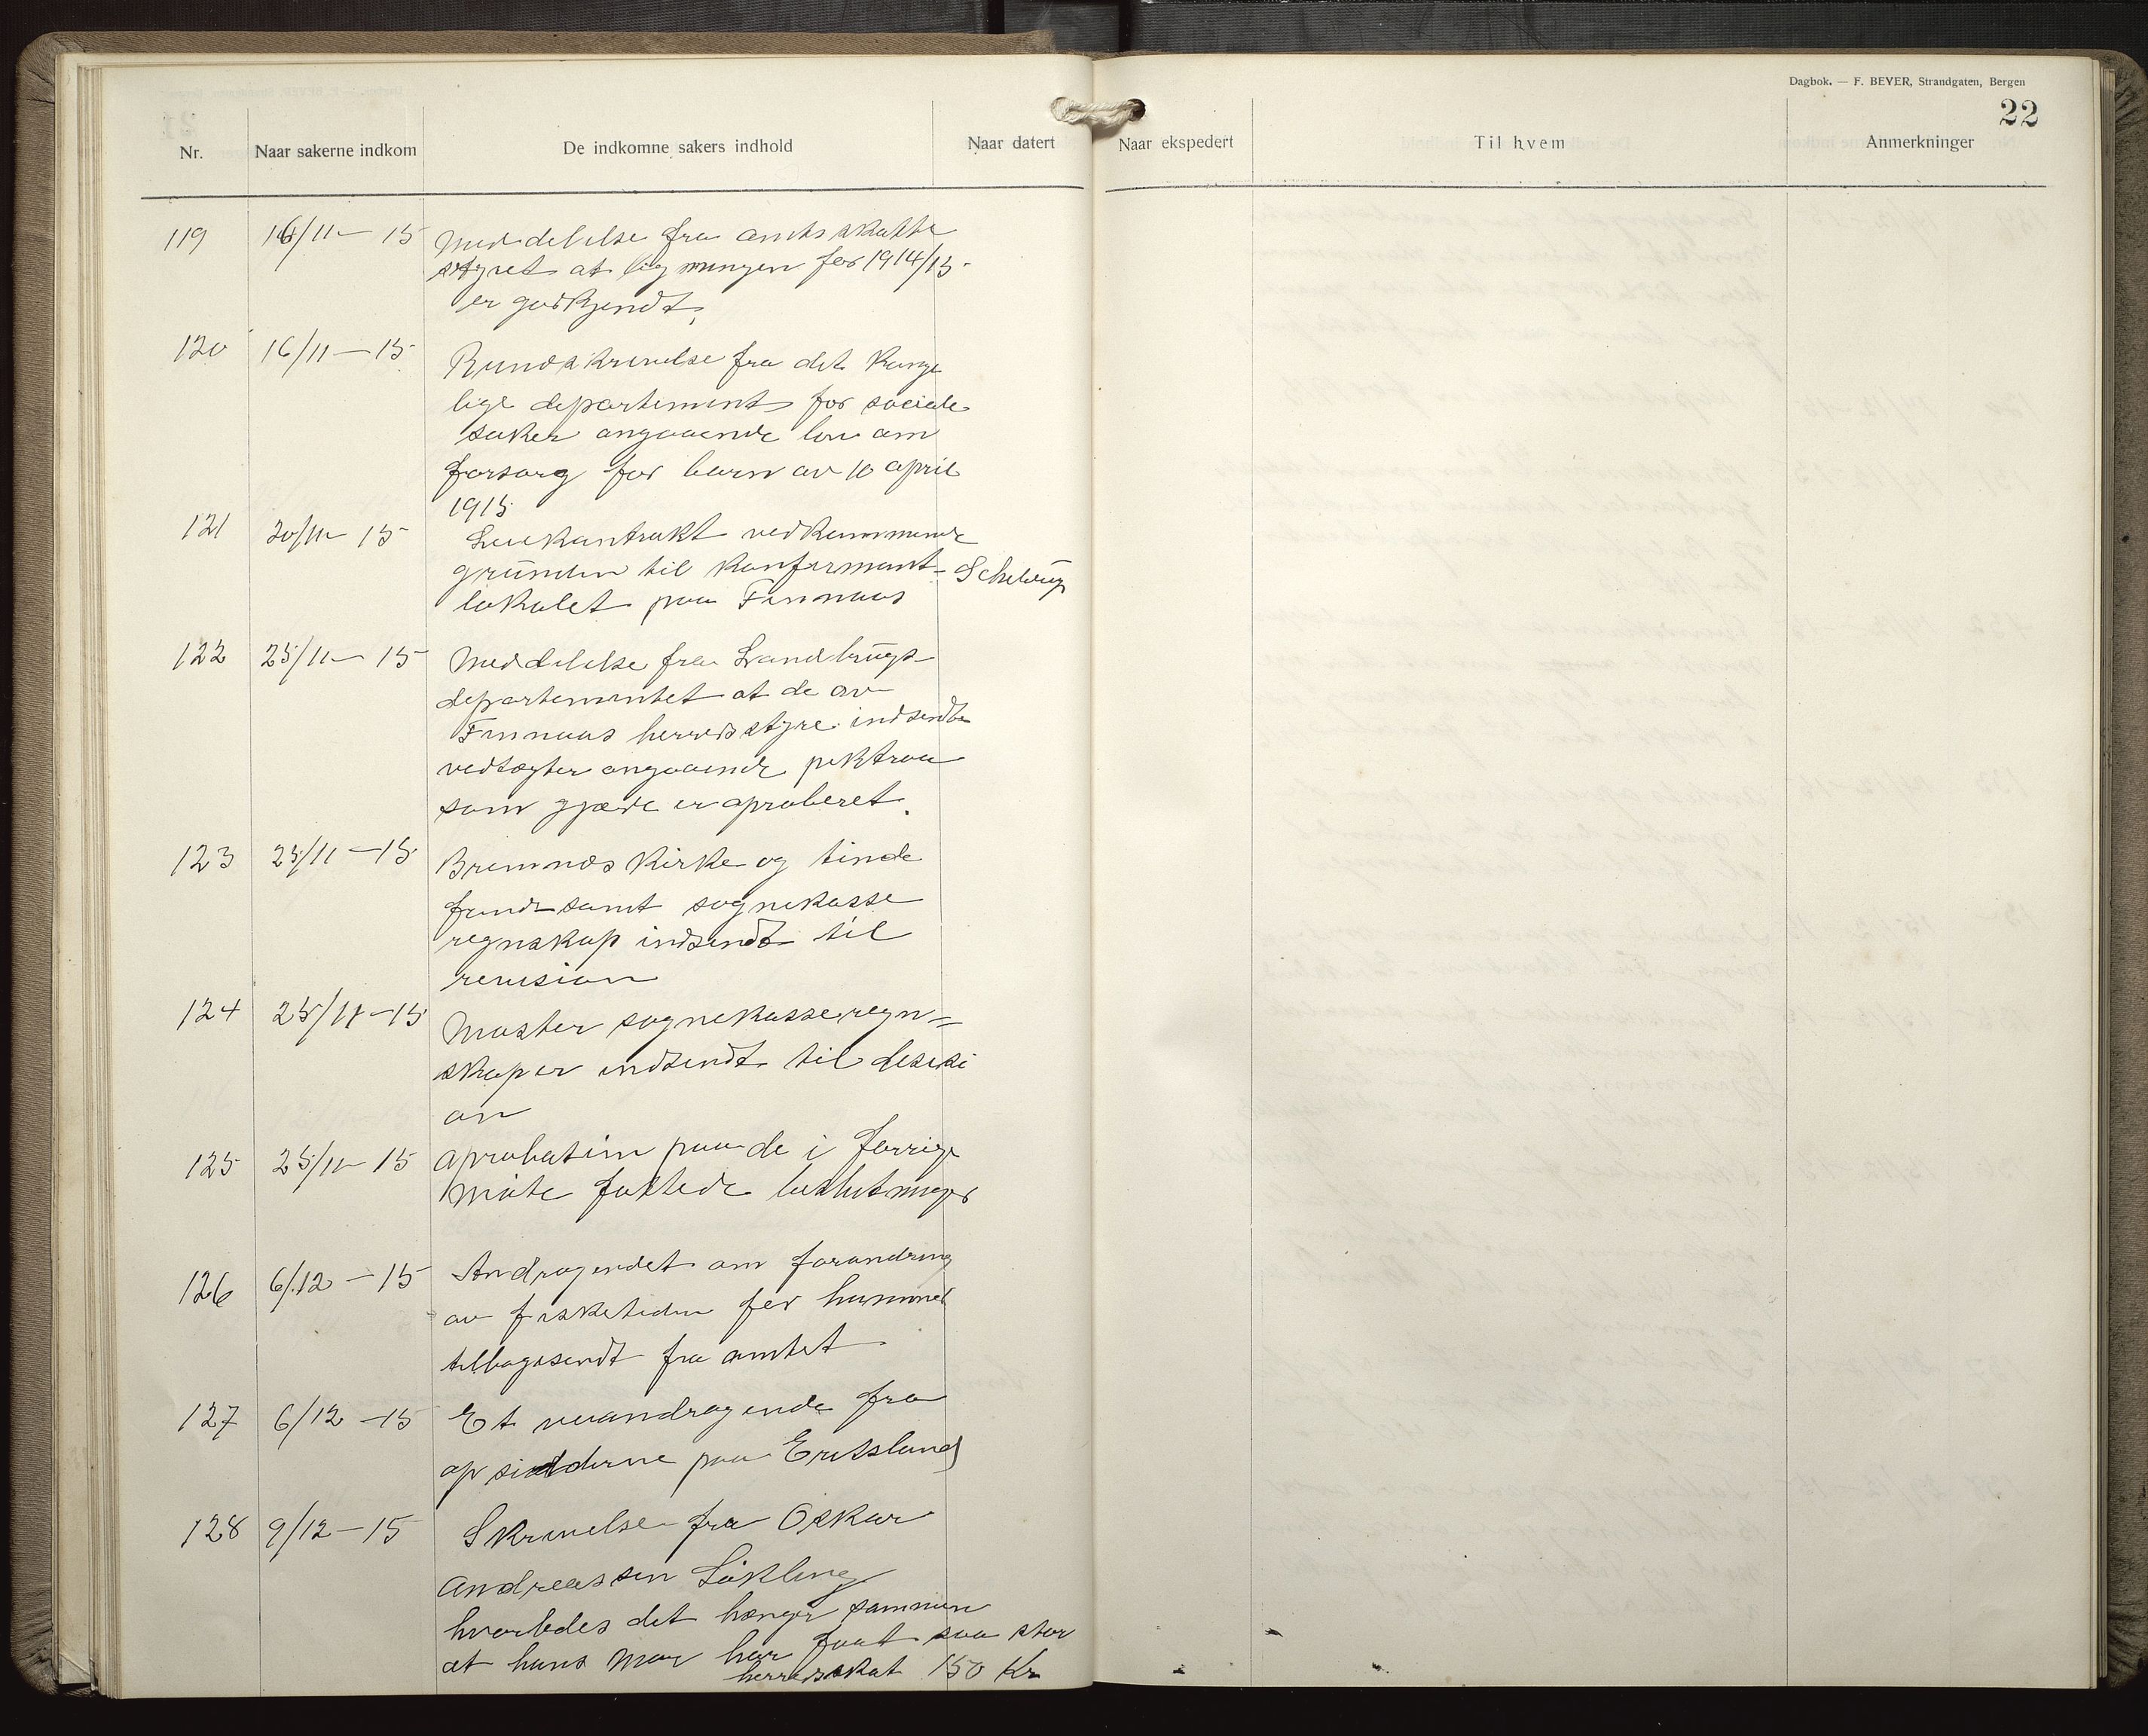 Dagbok. — F. BEYER, Strandgaten, Bergen
22
Nr. Naar sakerne indkom De indkomne sakers indhold Naar datert Naar ekspedert Til hvem Anmerkninger
119 16/11 - 15 Meddelelse fra amtsskatte
styret at ligningen for 1914/15
er godkjendt.
120 16/11 - 15 Rundskrivelse fra det konge
lige departement for sociale
saker angaaende lov om
forsorg for barn av 10 april
1915
121 20/11 - 15 Leiekontrakt vedkommende
grunden til konfirmant- Schelvig
lokalet paa Finnaas
122 25/11 - 15 Meddelelse fra Landbrugs-
departementet at de av
Finnaas herredsstyre indsendte
vedtægter angaaende piktraa
som gjærde er aproberet.
123 25/11 - 15 Bremnæs kirke og tinde
fond samt sognekasse
regnskap indsendt til
revision
124 25/11 - 15 Moster sognekasseregn=
skaper indsendt til desisi
on
125 25/11 - 15 aprobation paa de i forrige
møte fattede beslutninger
126 6/12 - 15 Andragendet om forandring
av fisketiden for hummer
tilbagesendt fra amtet
127 6/12 - 15 Et veiandragende fra
opsidderne paa Eritsland
128 9/12 - 15 Skrivelse fra Oskar
Andreassen Løkling
hvorledes det hænger sammen
at hans mor har faat saa stor
herredsskat 150 Kr